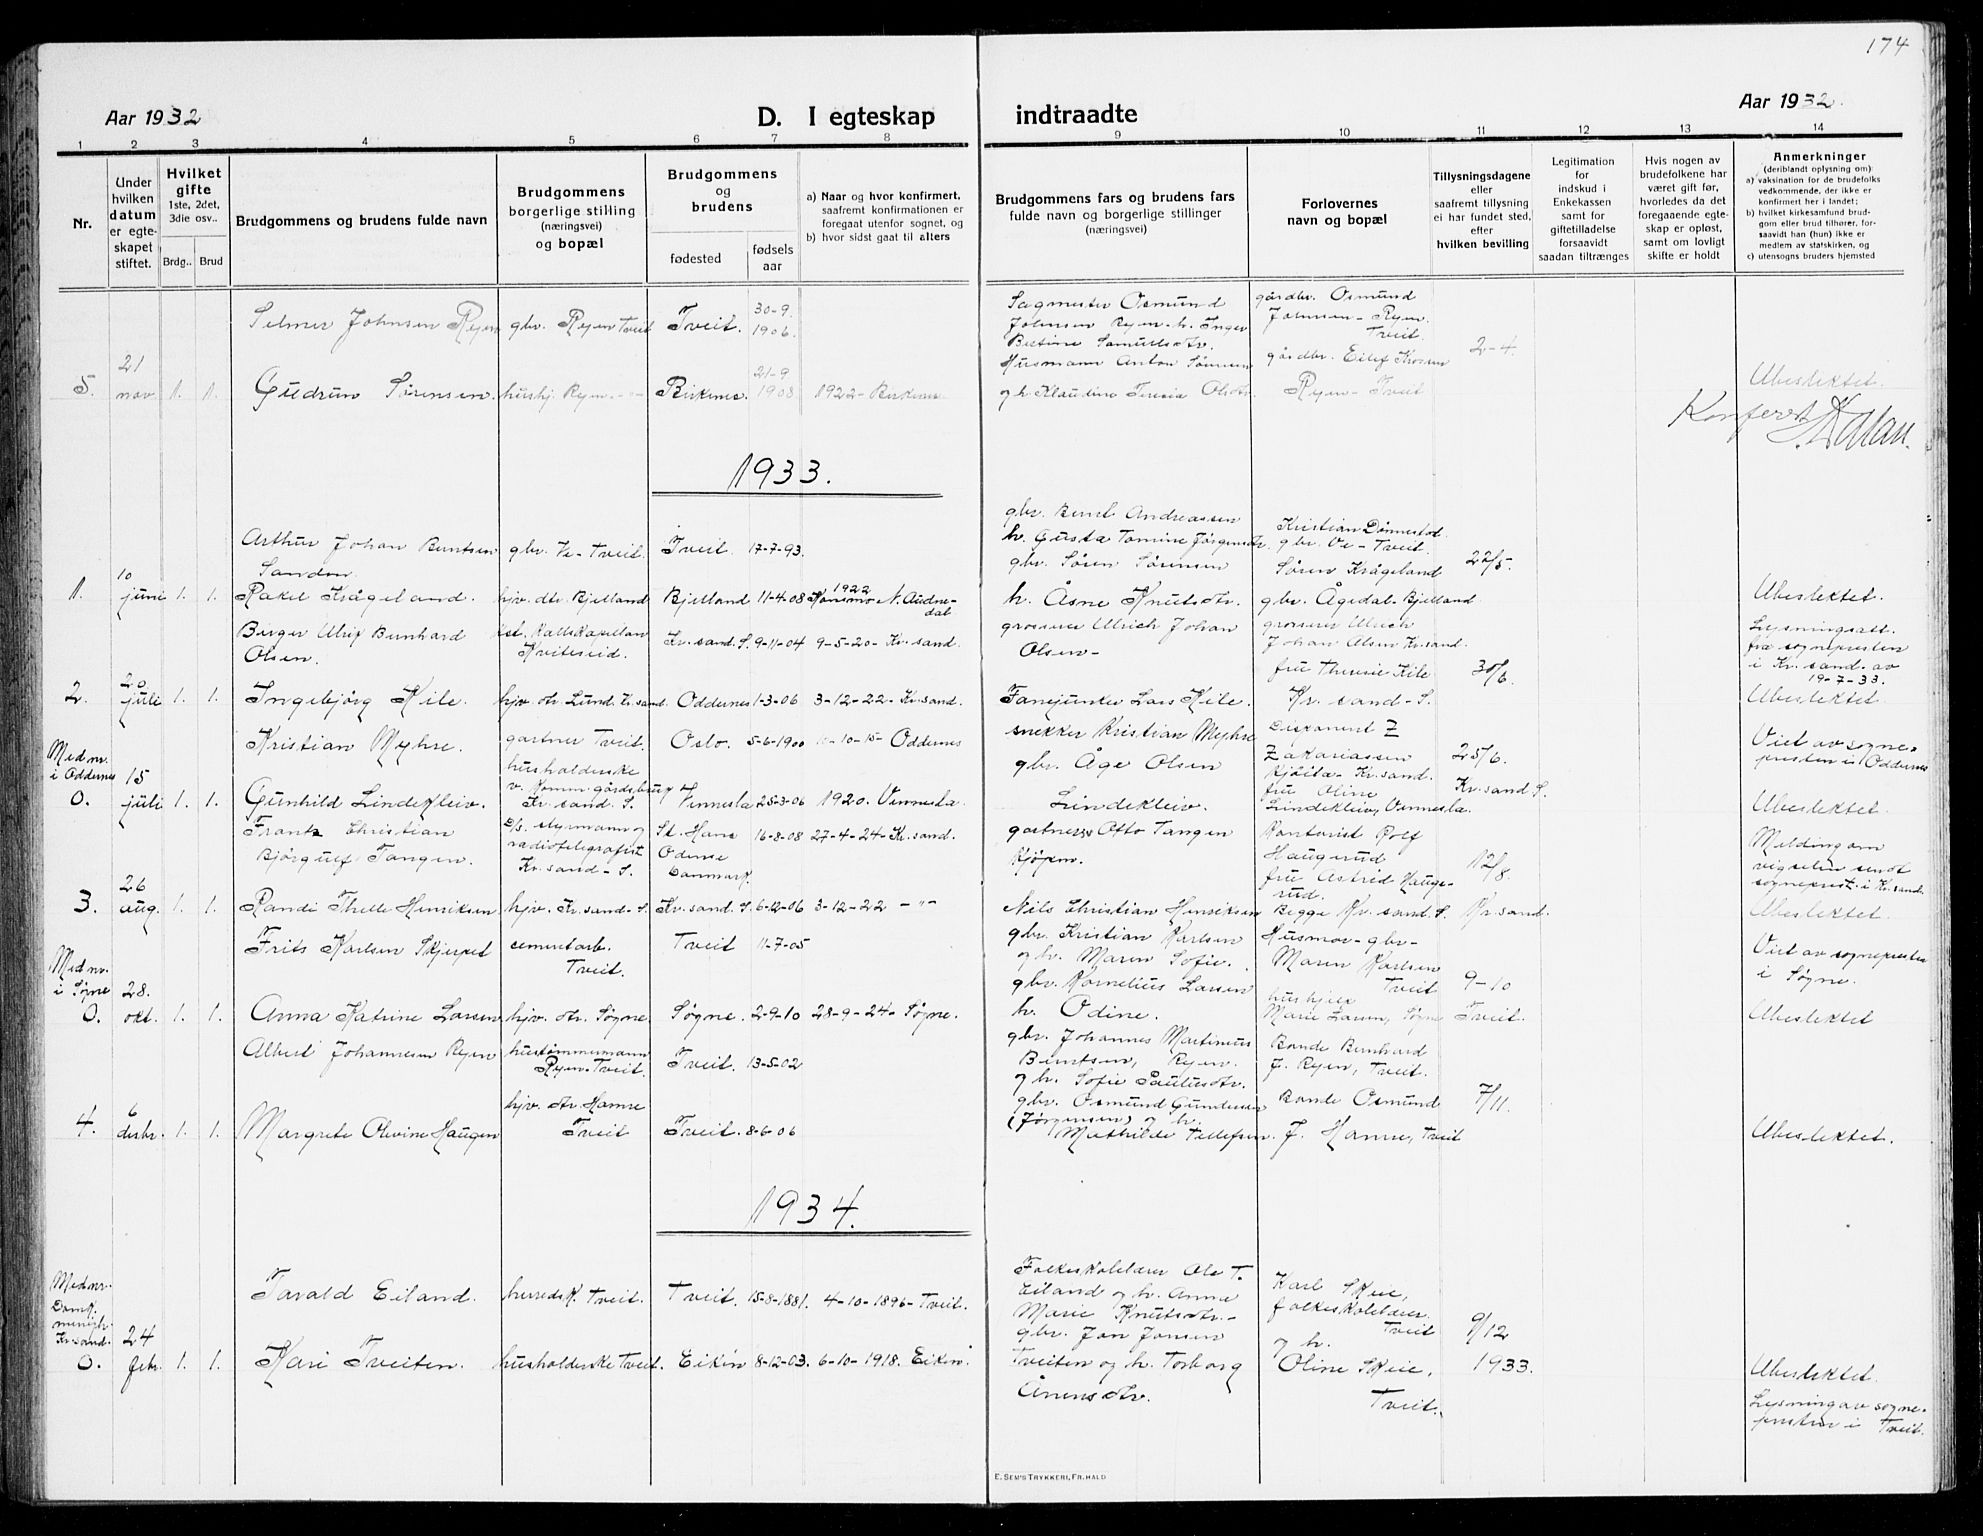 174
Aar 1932
D. I egteskap
indtraadte
Aar 1932.
1 2 3 4 5 6 7 8 9 10 11 12 13 14
Nr.
Under hvilken datum er egteskapet stiftet.
Hvilket gifte
1ste, 2det, 3die osv..
Brdg.. Brud
Brudgommens og brudens fulde navn
Brudgommens borgerlige stilling (næringsvei) og bopæl
Brudgommens og brudens
fødested
fødsels aar
a) Naar og hvor konfirmert, saafremt konfirmationen er foregaat utenfor sognet, og
b) hvor sidst gaat til alters
Brudgommens fars og brudens fars fulde navn og borgerlige stillinger (næringsvei)
Forlovernes navn og bopæl
Tillysningsdagene eller saafremt tillysning ei har fundet sted, efter hvilken bevilling
Legitimation for indskud i Enkekassen samt for giftetilladelse forsaavidt saadan tiltrænges
Hvis nogen av brudefolkene har været gift før, hvorledes da det foregaaende egteskap er opløst, samt om lovligt skifte er holdt
Anmerkninger
(deriblandt oplysning om):
a) vaksination for de brudefolks vedkommende, der ikke er konfirmert her i landet;
b) hvilket kirkesamfund brudgom eller brud tilhører, forsaavidt han (hun) ikke er medlem av statskirken, og
c) utensogns bruders hjemsted
Selmer Johnsen Ryen gbr. Ryen Tveit Tveit. 30-9 1906.
Sagmester Osmund Johnsen Ryen h. Inger Bertine Samuelsdtr.
gårdbr. Osmund Johnsen - Ryen Tveit
2-4.
5. 21 nov. 1. 1. Gudrun Sørensen. hushj. Ryen - "- Birkenes. 21-9 1908 1922 - Birkenes
Husmann Anton Sørensen og h. Klaudine Teresia Olsdtr.
gårdbr. Eilef Krossen Ryen - Tveit
Ubeslektet.
Konferert
1933.
Arthur Johan Berntsen Sanden gbr. Ve - Tveit. Tveit. 17-7-93.
gbr. Bernt Andreassen h. Gusta Tomine Jørgensdtr.
Kristian Dønnestad gbr. Ve - Tveit.
22/5.
1. 10 juni 1. 1. Rakel Krågeland. hjv. dtr. Bjelland Bjelland 11-4-08 1922 Konsmo N. Audnedal
gbr. Søren Sørensen h. Åsne Knutsdtr.
Søren Krågeland gbr. Ågedal - Bjelland
Ubeslektet.
Birger Ulrix Bernhard Olsen. kst. Kallskapellan Kviteseid. Kr.sand. S. 9-11-04 9-5-20- Kr. sand.
grosserer Ulrich Johan Olsen -
grosserer Ulrich Johan Olsen Kr.sand.
Lysningsatt. fra sognepresten i Kr. sand. av 19-7-33.
2. 20 juli 1. 1. Ingebjørg Kile. hjv. dtr. Lund. Kr.sand. Oddernes 1-3-06 3-12-22- Kr.sand.
Fanejunker Lars Kile.
fru Therese Kile Kr. sand - S.
30/6.
Ubeslektet
Kristian Myhre. gartner Tveit. Oslo. 5-6-1900 -10-15- Oddernes
snekker Kristian Myhre
Disponent Z Zakariassen Kjøita - Kr.sand.
25/6.
Viet av sognepresten i Oddernes
Med nr. i Oddernes
0. 15 juli 1. 1. Gunhild Lindekleiv. husholderske v. Komm. gårdsbruk Kr. sand. S. Vennesla 25-3-06 1920. Vennesla
gbr. Åge Olsen Lindekleiv.
fru Oline Lindekleiv, Vennesla.
Kr.sand S.
Ubeslektet
Frantz Christian Bjørgulf Tangen. styrmann og radiotelegrafist Kr. sand - S. St. Hans Odense Danmark. 16-8-08 27-4-24- Kr.sand.
gartner Otto Tangen Kjøpm.
Kontorist Rolf Haugerud
12/8.
Melding om vigselen sendt sogneprest. i Kr.sand.
3. 26 aug. 1. 1. Randi Thelle Henriksen hjv. Kr.sand - S. Kr.sand. S. 6-12-06 3-12-22 - "-
Nils Christian Henriksen
fru Astrid Haugerud. Begge Kr. sand. S.
Kr.sand.
Ubeslektet.
Frits Karlsen Skjerpet cementarb. Tveit. Tveit 11-7-05
gbr. Kristian Karlsen og h. Maren Sofie.
Husmor - gbr - Maren Karlsen Tveit
9-10
Viet av sognepresten i Søgne.
Med nr. i Søgne
0. 28. okt. 1. 1. Anna Katrine Larsen hjv. dtr. Søgne. Søgne. 2-9-10 28-9-24- Søgne.
gbr. Kornelius Larsen h. Odine.
hushjelp Marie Larsen, Søgne
Tveit.
Ubeslektet
Albert Johannesen Ryen hustømmermann Ryen - Tveit. Tveit. 13-5-02
gbr. Johannes Martinius Berntsen, Ryen. og h. Sofie Paulusdtr.
Bonde Bernhard J. Ryen, Tveit.
7/11.
4. 6 desbr. 1. 1. Margrete Olevine Haugen hjv. dtr. Hamre Tveit Tveit. 8-6-06
gbr. Osmund Gundersen (Jørgensen) og h. Mathilde Tellefsen.
Bonde Osmund J. Hamre, Tveit
Ubeslektet.
1934.
Tarald Eiland. herredsk. Tveit. Tveit. 15-8-1881. 4-10-1896- Tveit.
Folkeskolelærer Ole T. Eiland og h. Anne Marie Knutsdtr. -
Karl Skeie, folkeskolelærer Tveit
9/12
Med nr. Domk. menigh. Kr.sand.
0. 24 febr. 1. 1. Kari Tveiten. husholderske Tveit. Eikin 8-12-03. 6-10-1918. Eikin
gbr. Jon Jonsen Tveiten og h. Torborg Ånensdtr.
og h. Oline Skeie, Tveit.
1933.
Ubeslektet.
Lysning av sognepresten i Tveit.
E. SEM'S TRYKKERI, FR.HALD